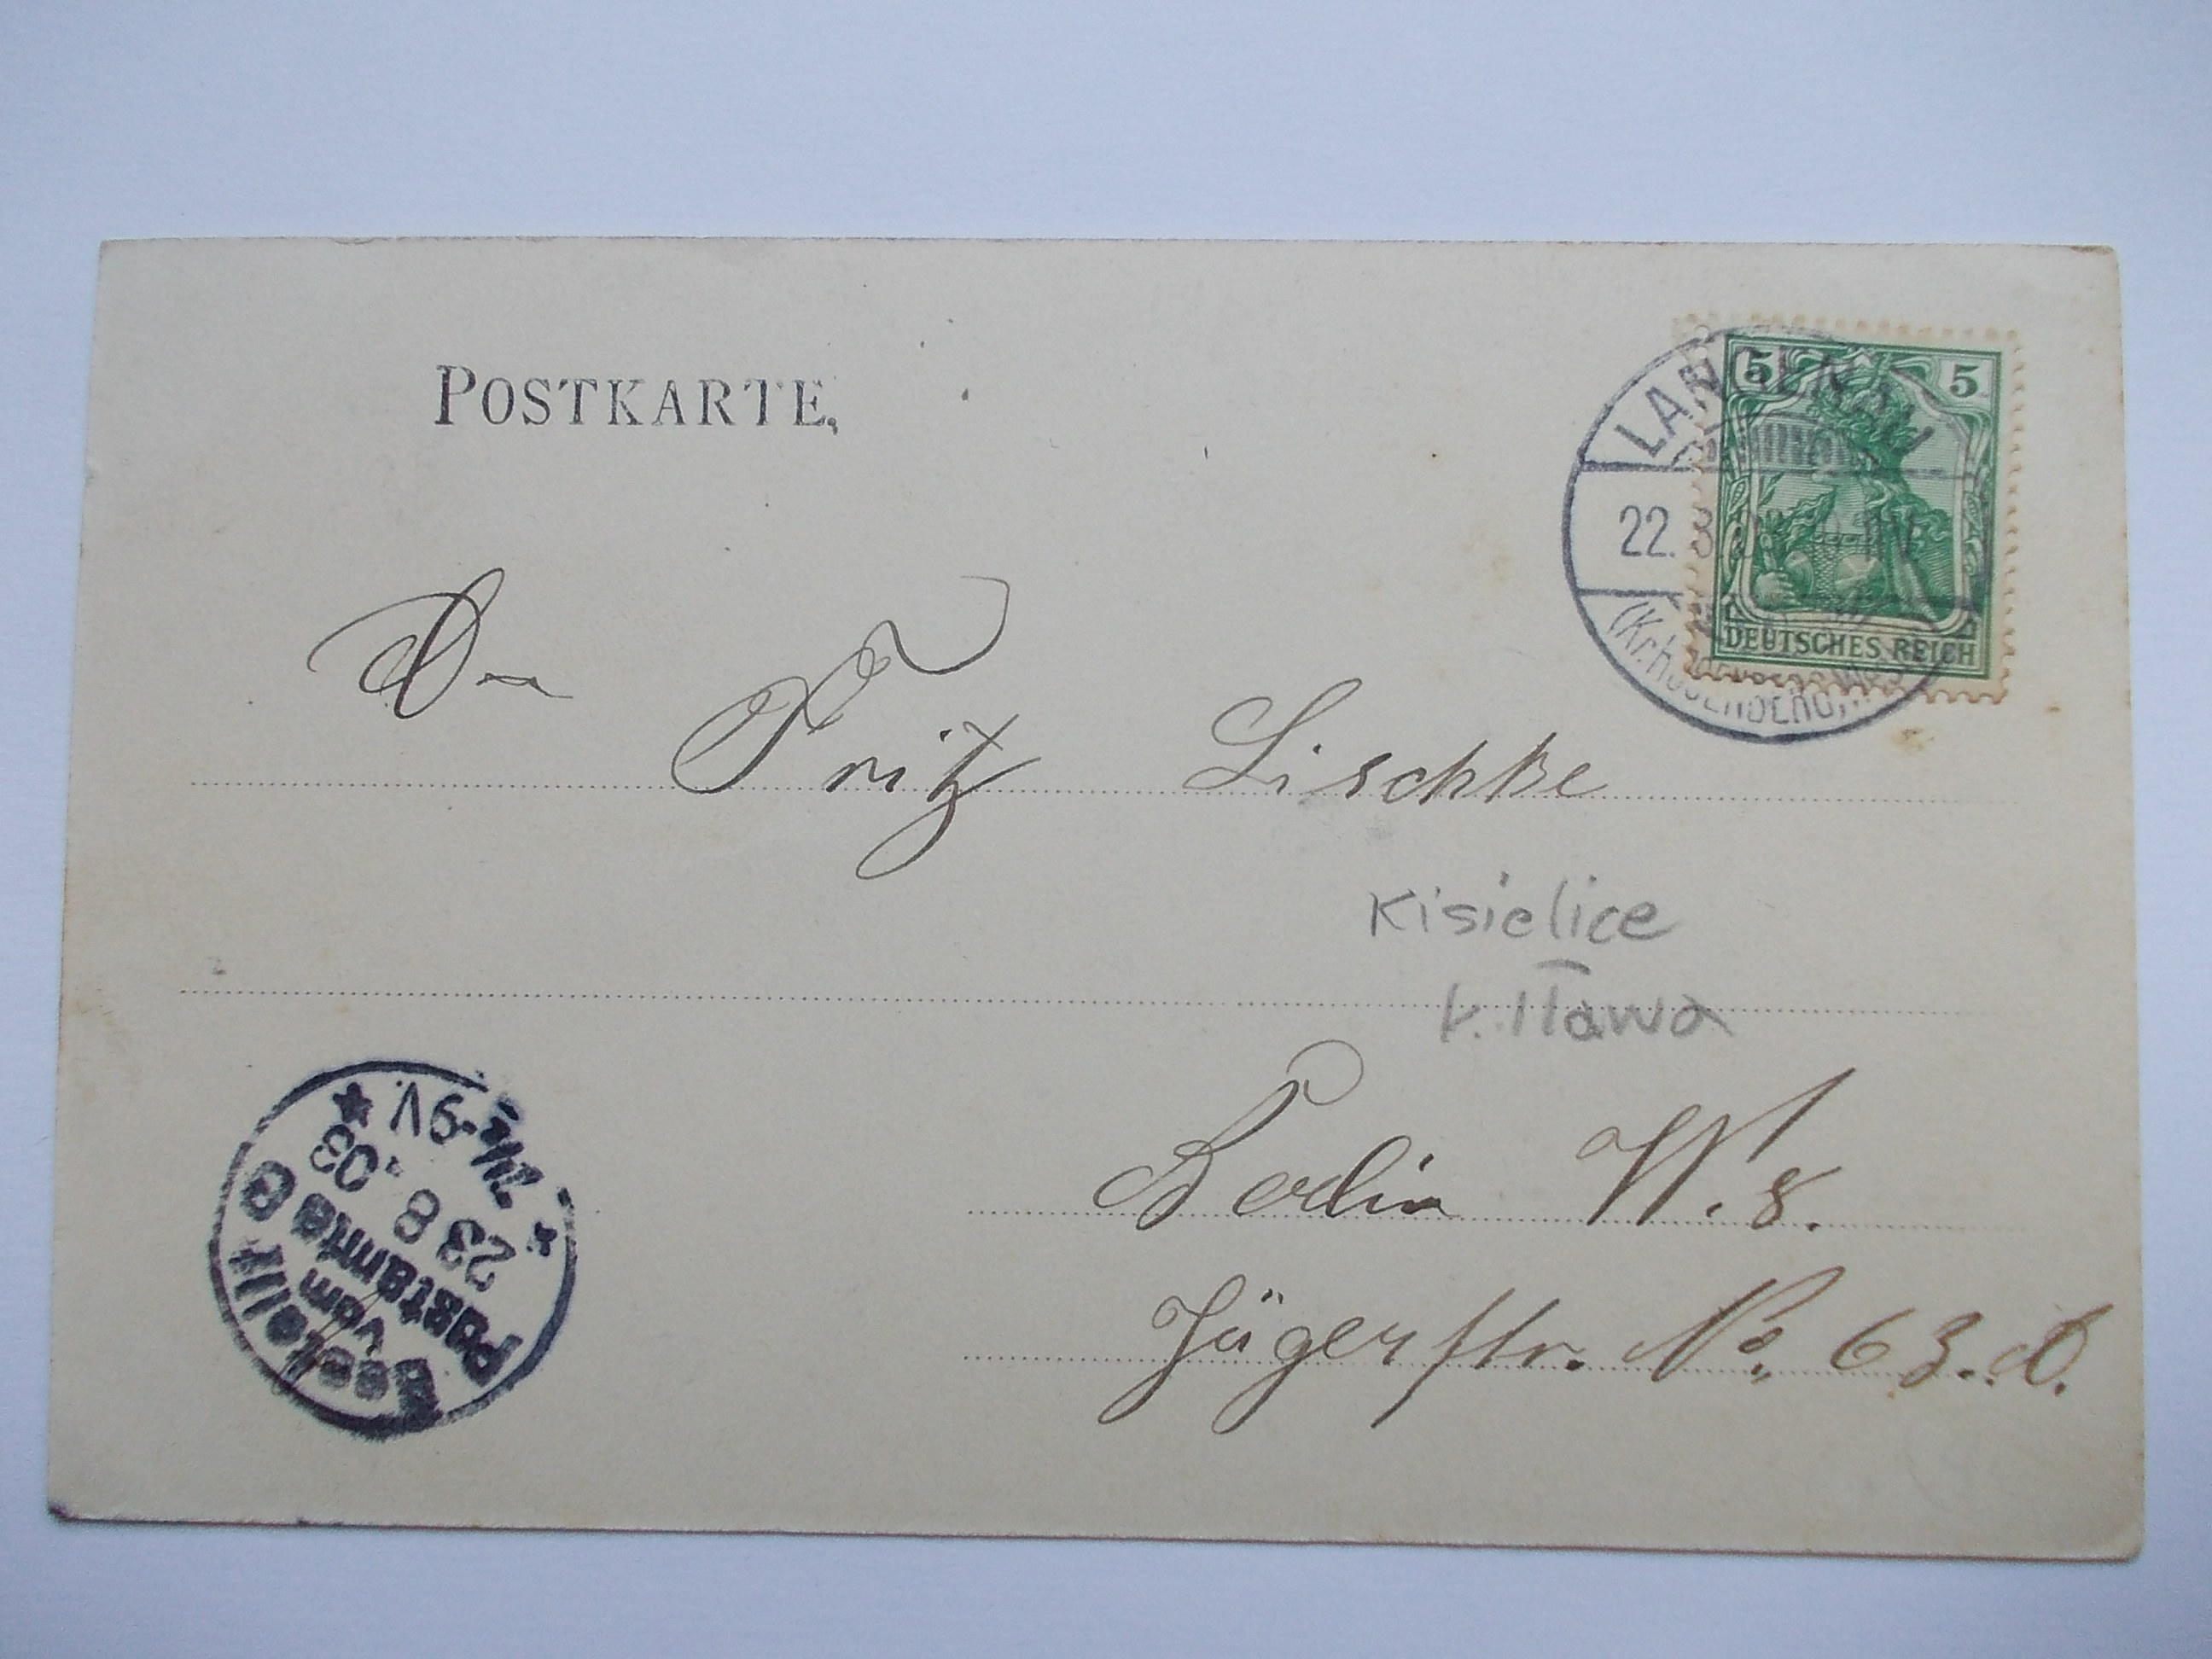 POSTKARTE.
5 5
LANGENAU
22. 8
DEUTSCHES REICH
Fritz Lischke
Kisielice
k. Iława
Berlin W. 8.
Jägerstr. No. 63.
Bestellt
vom
Postamte 8
23 8 .03
7½-9V